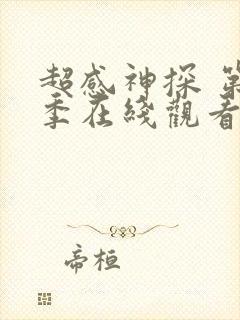 超感神探 第
季在綫觀看
帝桓